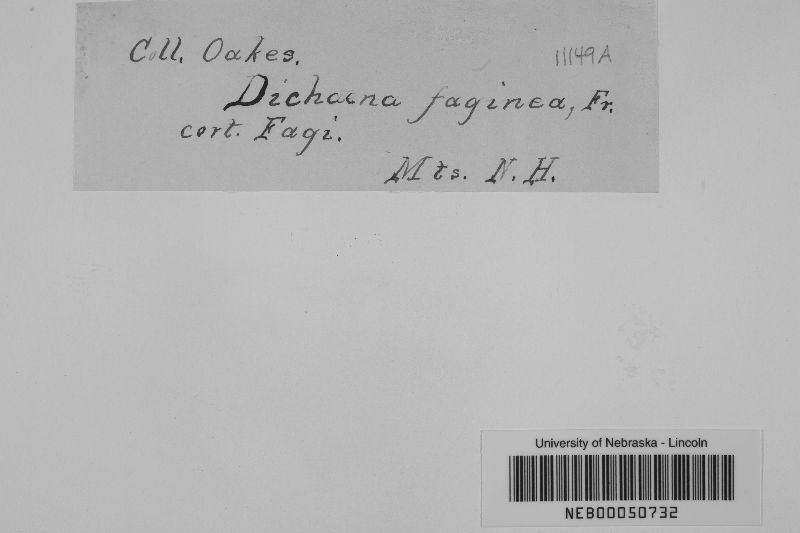 Coll. Oakes. 11149A
Dichaena faginea, Fr.
cort. Fagi.
Mts. N. H.
University of Nebraska - Lincoln
NEB00050732